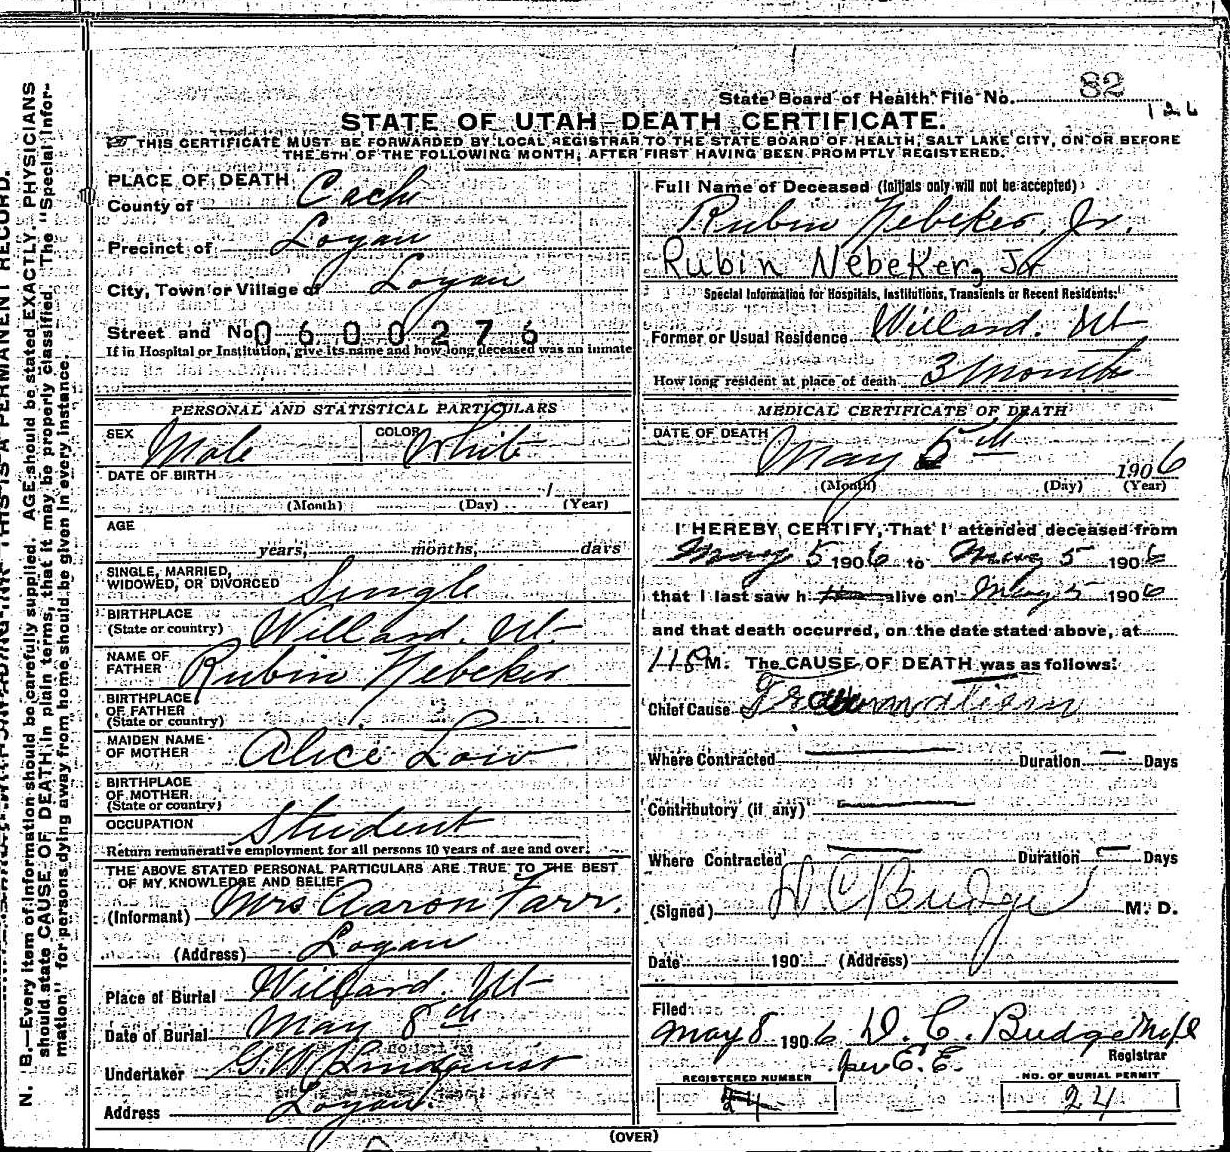 State Board of Health File No. 82
126
STATE OF UTAH—DEATH CERTIFICATE.
THIS CERTIFICATE MUST BE FORWARDED BY LOCAL REGISTRAR TO THE STATE BOARD OF HEALTH, SALT LAKE CITY, ON OR BEFORE
THE 5TH OF THE FOLLOWING MONTH, AFTER FIRST HAVING BEEN PROMPTLY REGISTERED.
PLACE OF DEATH
County of Cache
Precinct of Logan
City, Town or Village of Logan
Street and No. 0600276
If in Hospital or Institution, give its name and how long deceased was an inmate
PERSONAL AND STATISTICAL PARTICULARS
SEX Male COLOR White
DATE OF BIRTH 1
(Month) (Day) (Year)
AGE
years, months, days
SINGLE, MARRIED,
WIDOWED, OR DIVORCED Single
BIRTHPLACE
(State or country) Willard. Ut
NAME OF
FATHER Rubin Nebeker
BIRTHPLACE
OF FATHER
(State or country)
MAIDEN NAME
OF MOTHER Alice Low
BIRTHPLACE
OF MOTHER
(State or country)
OCCUPATION Student
Return remunerative employment for all persons 10 years of age and over.
THE ABOVE STATED PERSONAL PARTICULARS ARE TRUE TO THE BEST
OF MY KNOWLEDGE AND BELIEF
(Informant) Mrs Aaron Farr.
(Address) Logan
Place of Burial Willard. Ut
Date of Burial May 8th
Undertaker G. W. Lindquist
Address Logan.
Full Name of Deceased (Initials only will not be accepted)
Rubin Nebeker, Jr.
Rubin Nebeker, Jr
Special Information for Hospitals, Institutions, Transients or Recent Residents:
Former or Usual Residence Willard. Ut
How long resident at place of death 3 Months
MEDICAL CERTIFICATE OF DEATH
DATE OF DEATH May 5th 1906
(Month) (Day) (Year)
I HEREBY CERTIFY, That I attended deceased from
May 5 1906 to May 5 1906
that I last saw h alive on May 5 1906
and that death occurred, on the date stated above, at
11 P M. The CAUSE OF DEATH was as follows:
Chief Cause Traumatism
Where Contracted Duration Days
Contributory (if any)
Where Contracted Duration Days
(Signed) D C Budge M. D.
Date 190 (Address)
Filed
May 8 1906 D. C. Budge
Registrar
per E. E.
REGISTERED NUMBER
24
NO. OF BURIAL PERMIT
24
(OVER)
N. B.—Every item of information should be carefully supplied. AGE should be stated EXACTLY. PHYSICIANS
should state CAUSE OF DEATH in plain terms, that it may be properly classified. The "Special Infor-
mation" for persons dying away from home should be given in every instance.
THIS IS A PERMANENT RECORD.